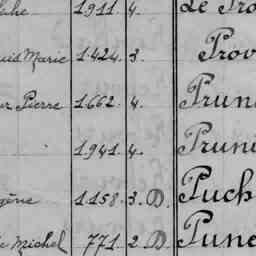 1911. 4. Le Pro
Marie 1424. 3. Prov
Pierre 1662. 4. Prun
1941. 4. Pruni
1158. 3. D. Puch
Michel 771. 2. D. Pune